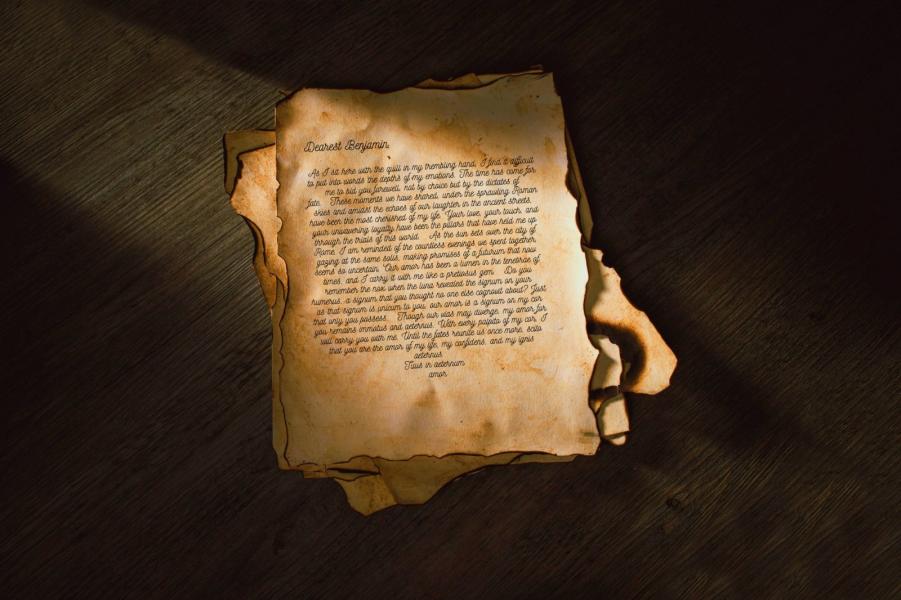 Dearest Benjamin,
As I sit here with the quill in my trembling hand, I find it difficult
to put into words the depths of my emotions. The time has come for
me to bid you farewell, not by choice but by the dictates of
fate. These moments we have shared, under the sprawling Roman
skies and amidst the echoes of our laughter in the ancient streets,
have been the most cherished of my life. Your love, your touch, and
your unwavering loyalty have been the pillars that have held me up
through the trials of this world. As the sun sets over the city of
Rome, I am reminded of the countless evenings we spent together
gazing at the same solis, making promises of a futurum that now
seems so uncertain. Our amor has been a lumen in the tenebrae of
times, and I carry it with me like a pretiosus gem. Do you
remember the nox when the luna revealed the signum on your
humerus, a signum that you thought no one else cognovit about? Just
as that signum is unicum to you, our amor is a signum on my cor
that only you possess. Though our vias may diverge, my amor for
you remains immotus and aeternus. With every palpito of my cor, I
will carry you with me. Until the fates reunite us once more, scito
that you are the amor of my life, my confidens, and my ignis
aeternus.
Tuus in aeternum
amor,